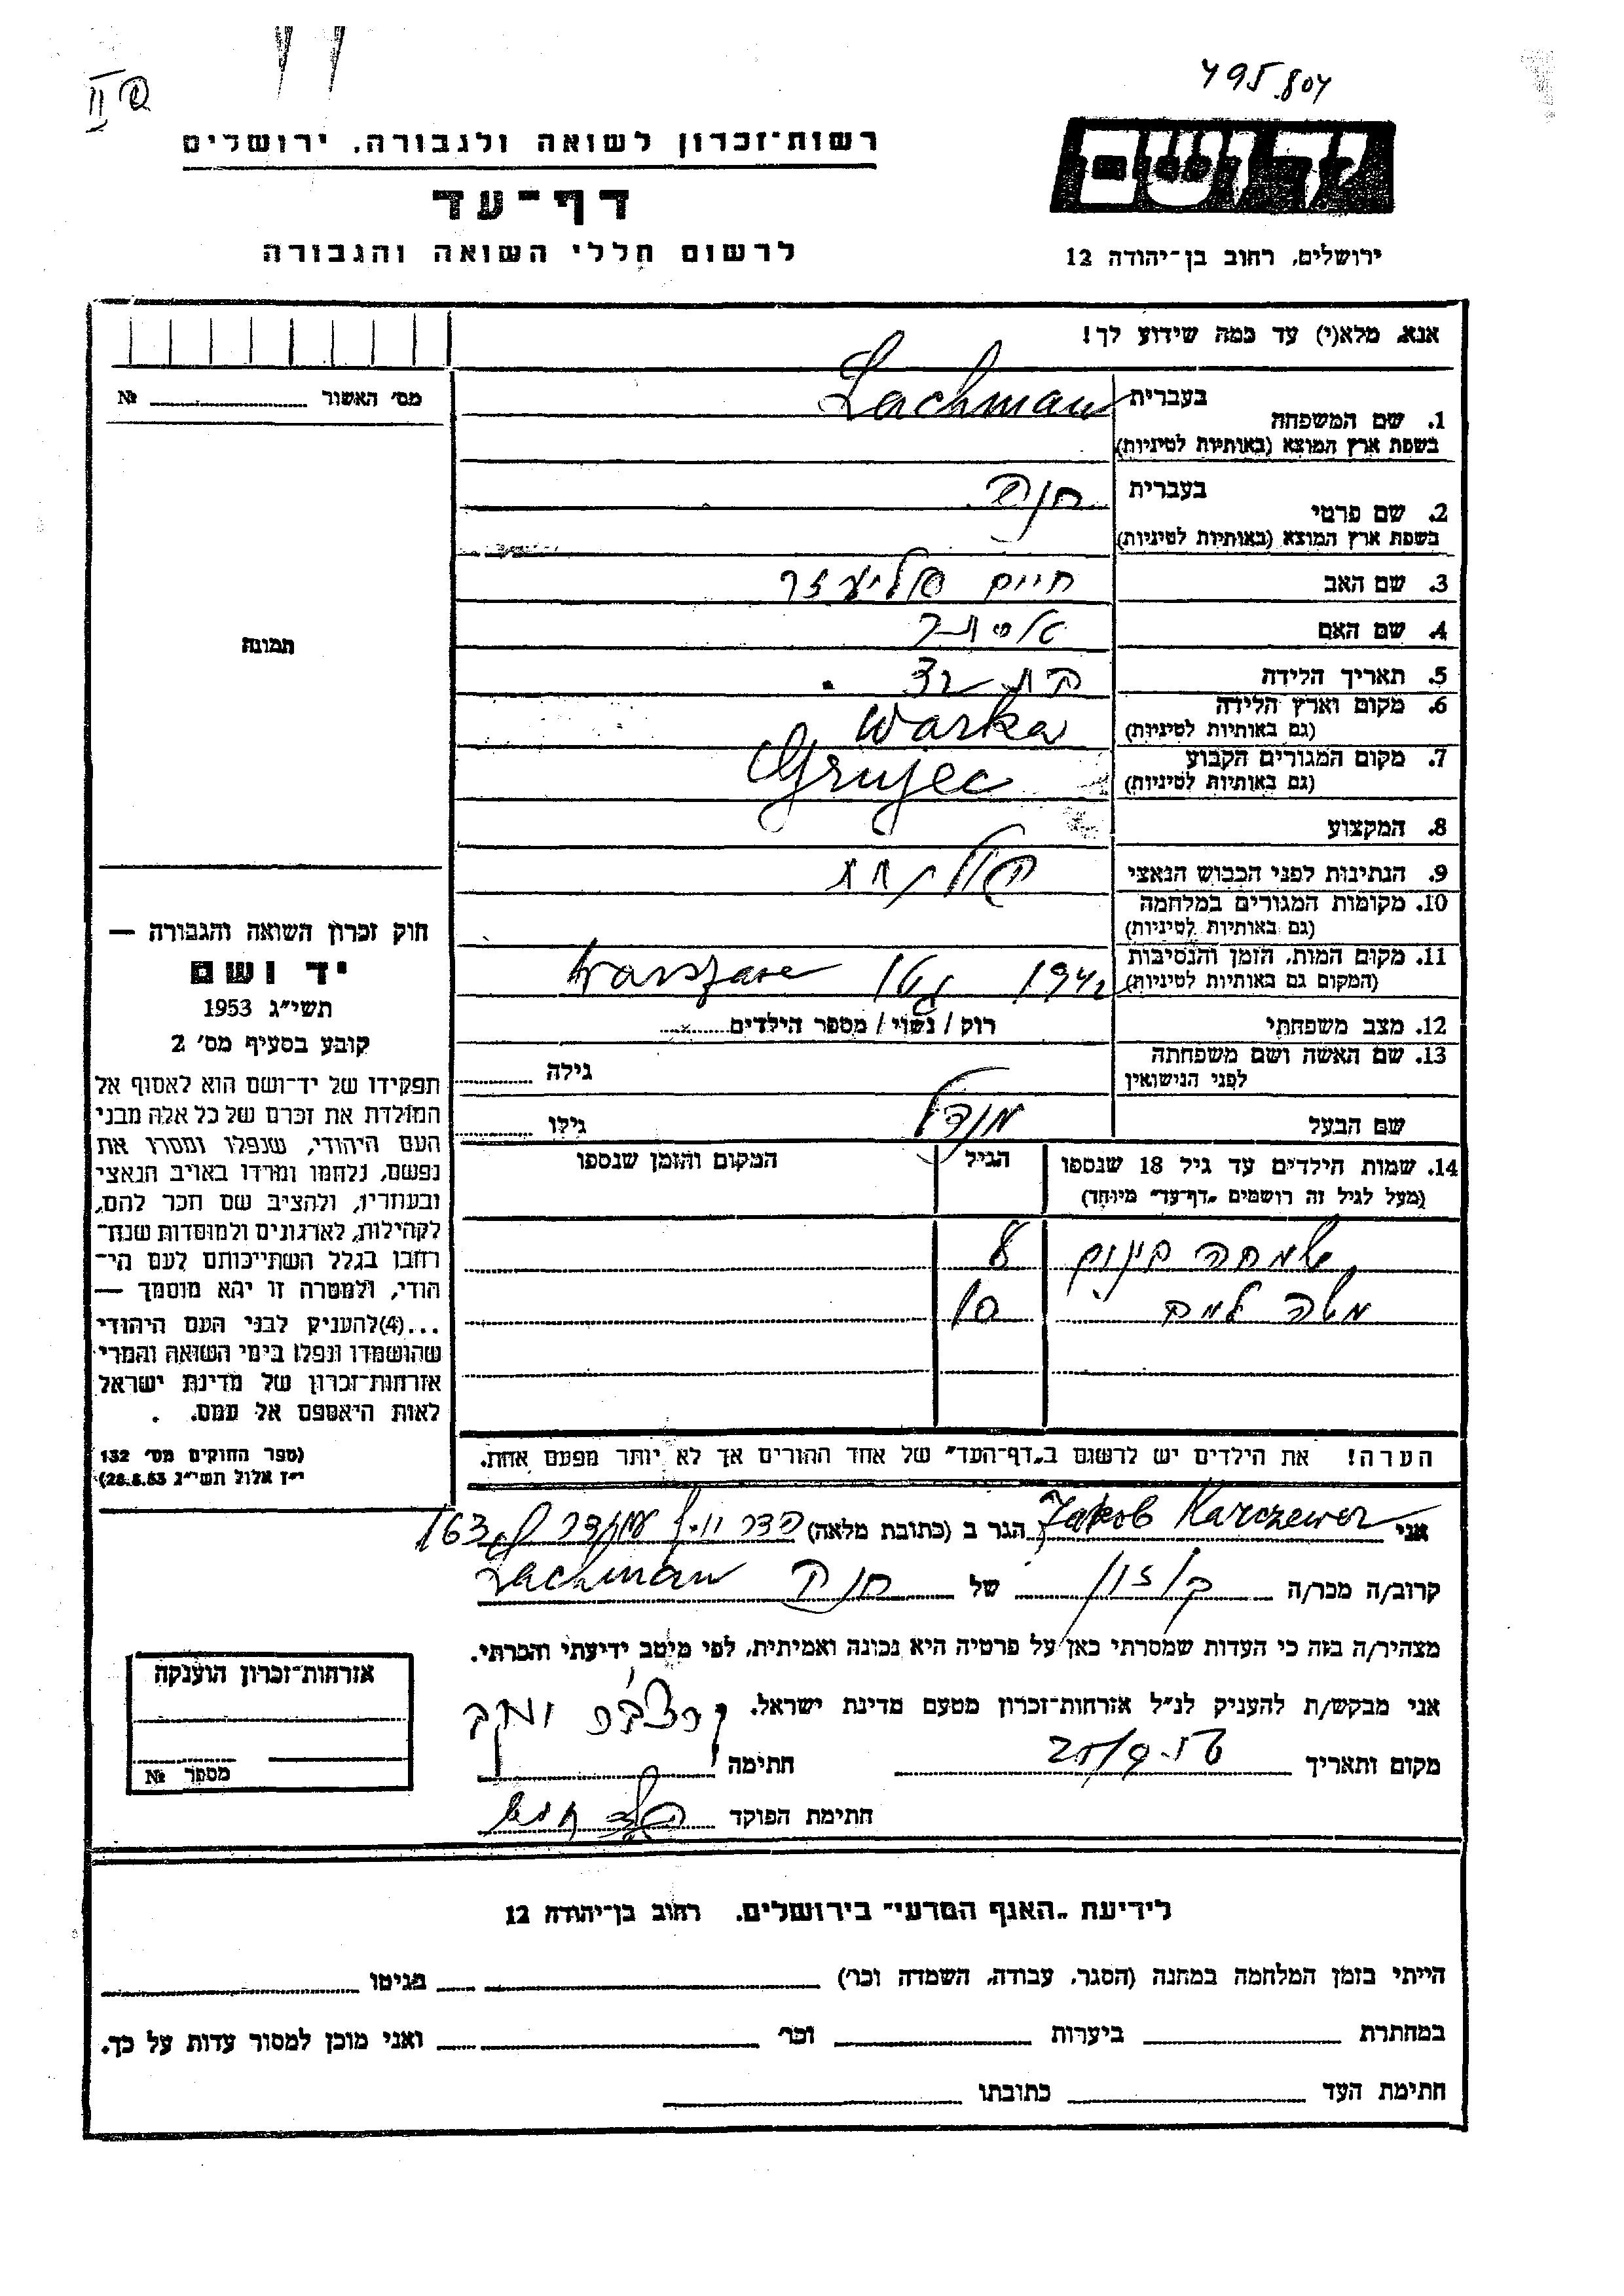 495.804
II
רשות־זכרון לשואה ולגבורה, ירושלים
יד ושם
דף־עד
לרשום חללי השואה והגבורה
ירושלים, רחוב בן־יהודה 12
אנא, מלא(י) עד כמה שידוע לך!
מס׳ האשור № 
1. שם המשפחה בעברית Lachman
בשפת ארץ המוצא (באותיות לטיניות)
2. שם פרטי בעברית חנה
בשפת ארץ המוצא (באותיות לטיניות)
3. שם האב חיים אליעזר
4. שם האם
5. תאריך הלידה
6. מקום וארץ הלידה (גם באותיות לטיניות) Warka
7. מקום המגורים הקבוע (גם באותיות לטיניות) Grujec
8. המקצוע
9. הנתינות לפני הכבוש הנאצי
10. מקומות המגורים במלחמה (גם באותיות לטיניות)
11. מקום המות, הזמן והנסיבות (המקום גם באותיות לטיניות) 1942 גטו Warszawe
12. מצב משפחתי רוק / נשוי / מספר הילדים
13. שם האשה ושם משפחתה לפני הנישואין גילה
שם הבעל מנדל גילו
תמונה
חוק זכרון השואה והגבורה —
יד ושם
תשי״ג 1953
קובע בסעיף מס׳ 2
תפקידו של יד־ושם הוא לאסוף אל
המולדת את זכרם של כל אלה מבני
העם היהודי, שנפלו ומסרו את
נפשם, נלחמו ומרדו באויב הנאצי
ובעוזריו, ולהציב שם וזכר להם,
לקהילות, לארגונים ולמוסדות שנח־
רבו בגלל השתייכותם לעם הי־
הודי, ולמטרה זו יהא מוסמך —
...(4) להעניק לבני העם היהודי
שהושמדו ונפלו בימי השואה והמרי
אזרחות־זכרון של מדינת ישראל
לאות היאספם אל עמם.
(ספר החוקים מס׳ 132
י״ז אלול תשי״ג 28.8.53)
14. שמות הילדים עד גיל 18 שנספו הגיל המקום והזמן שנספו
(מעל לגיל זה רושמים „דף־עד״ מיוחד)
שמחה בינום 8
משה 10
הערה! את הילדים יש לרשום ב„דף־העד״ של אחד ההורים אך לא יותר מפעם אחת.
אני Jakob Karczewer הגר ב (כתובת מלאה) 163
קרוב/ה מכר/ה בן דוד של חנה Lachman
מצהיר/ה בזה כי העדות שמסרתי כאן על פרטיה היא נכונה ואמיתית, לפי מיטב ידיעתי והכרתי.
אני מבקש/ת להעניק לנ״ל אזרחות־זכרון מטעם מדינת ישראל.
מקום ותאריך 25/9.56 חתימה
חתימת הפוקד
אזרחות־זכרון הוענקה
מספר №
לידיעת „האגף המדעי״ בירושלים, רחוב בן־יהודה 12
הייתי בזמן המלחמה במחנה (הסגר, עבודה, השמדה וכו׳) בגיטו
במחתרת ביערות וכו׳ ואני מוכן למסור עדות על כך.
חתימת העד כתובתו